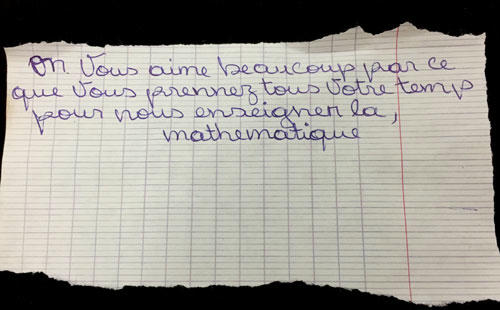 On Vous aime beaucoup par ce
que Vous prennez tous Votre temps
pour nous enseigner la,
mathematique